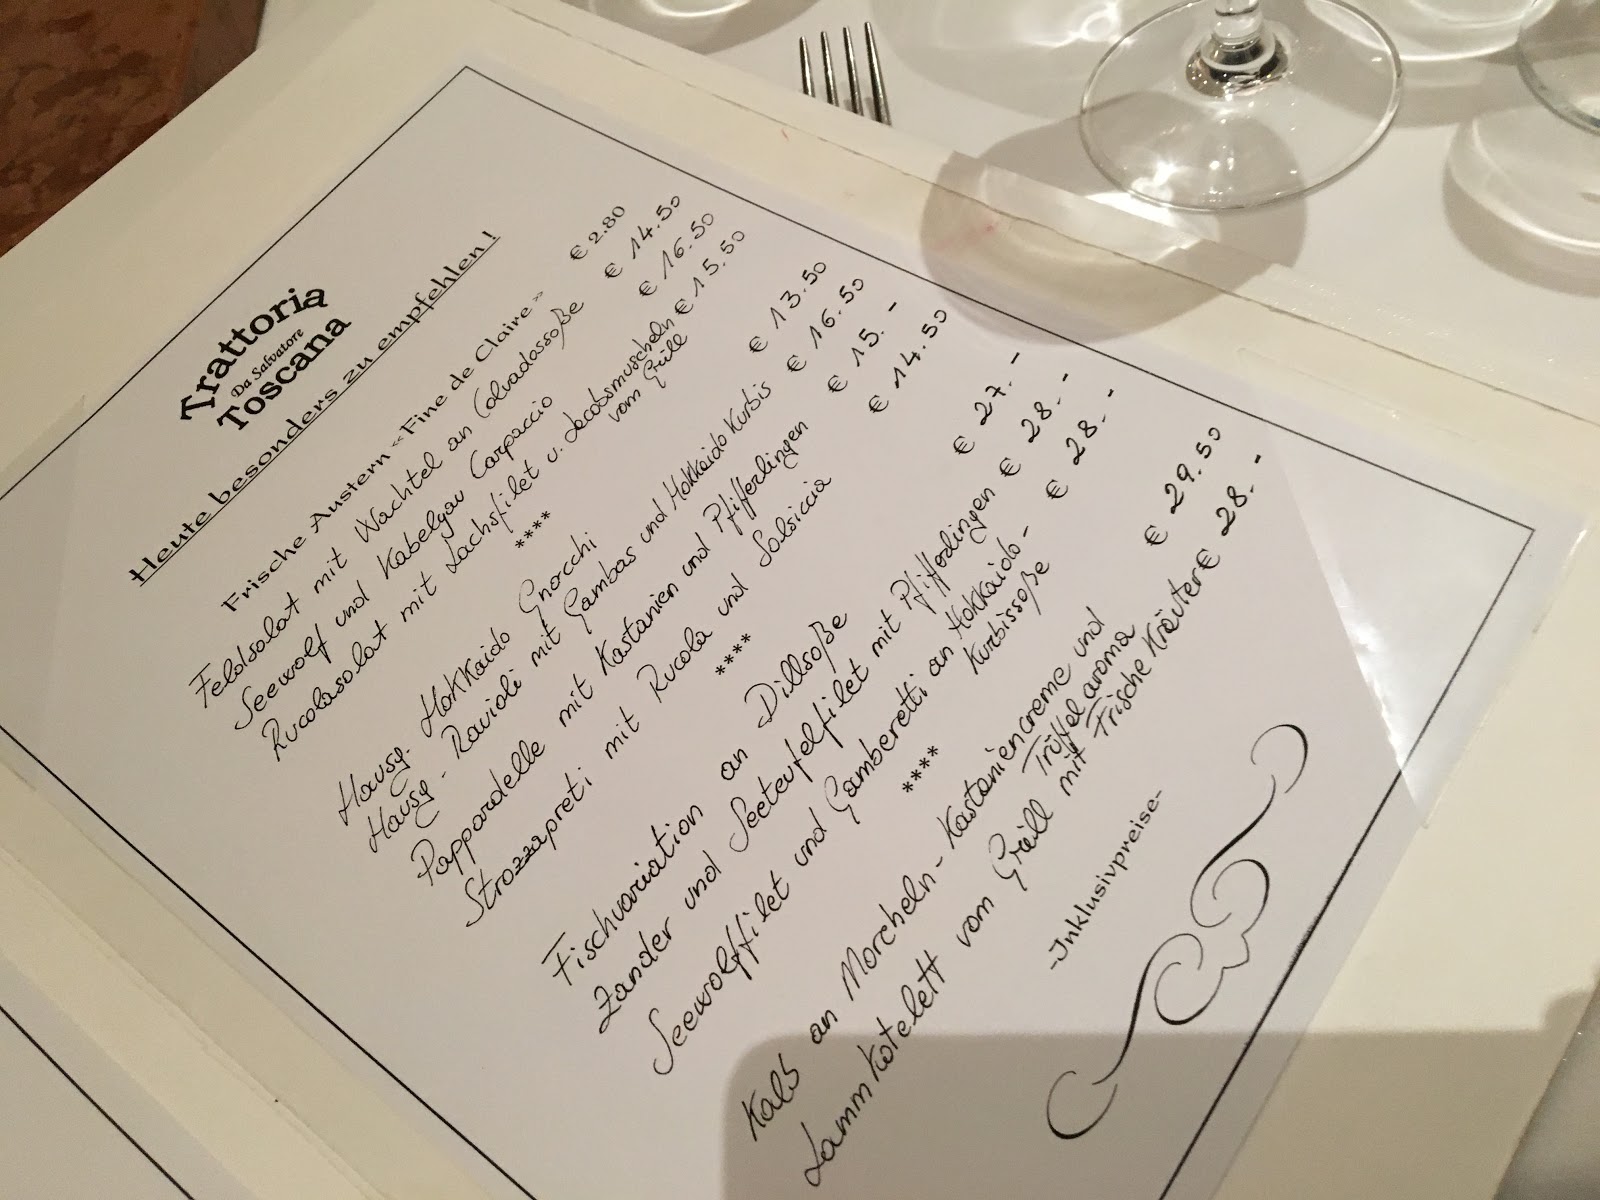 Trattoria
Da Salvatore
Toscana
Heute besonders zu empfehlen!
Frische Austern «Fine de Claire» € 2.80
Feldsalat mit Wachtel an Calvadossoße € 14.50
Seewolf und Kabelgau Carpaccio € 16.50
Rucolasalat mit Lachsfilet u. Jacobsmuscheln € 15.50
vom Grill
****
Hausg. Hokkaido Gnocchi € 13.50
Hausg. Ravioli mit Gambas und Hokkaido Kurbis € 16.50
Pappardelle mit Kastanien und Pfifferlingen € 15.-
Strozzapreti mit Rucola und Salsiccia € 14.50
****
Fischvariation an Dillsoße € 27.-
Zander und Seeteufelfilet mit Pfifferlingen € 28.-
Seewolffilet und Gamberetti an Hokkaido- € 28.-
Kurbissoße
****
Kalb an Morcheln- Kastaniencreme und € 29.50
Trüffelaroma
Lammkotelett vom Grill mit Frische Kräuter € 28.-
-Inklusivpreise-